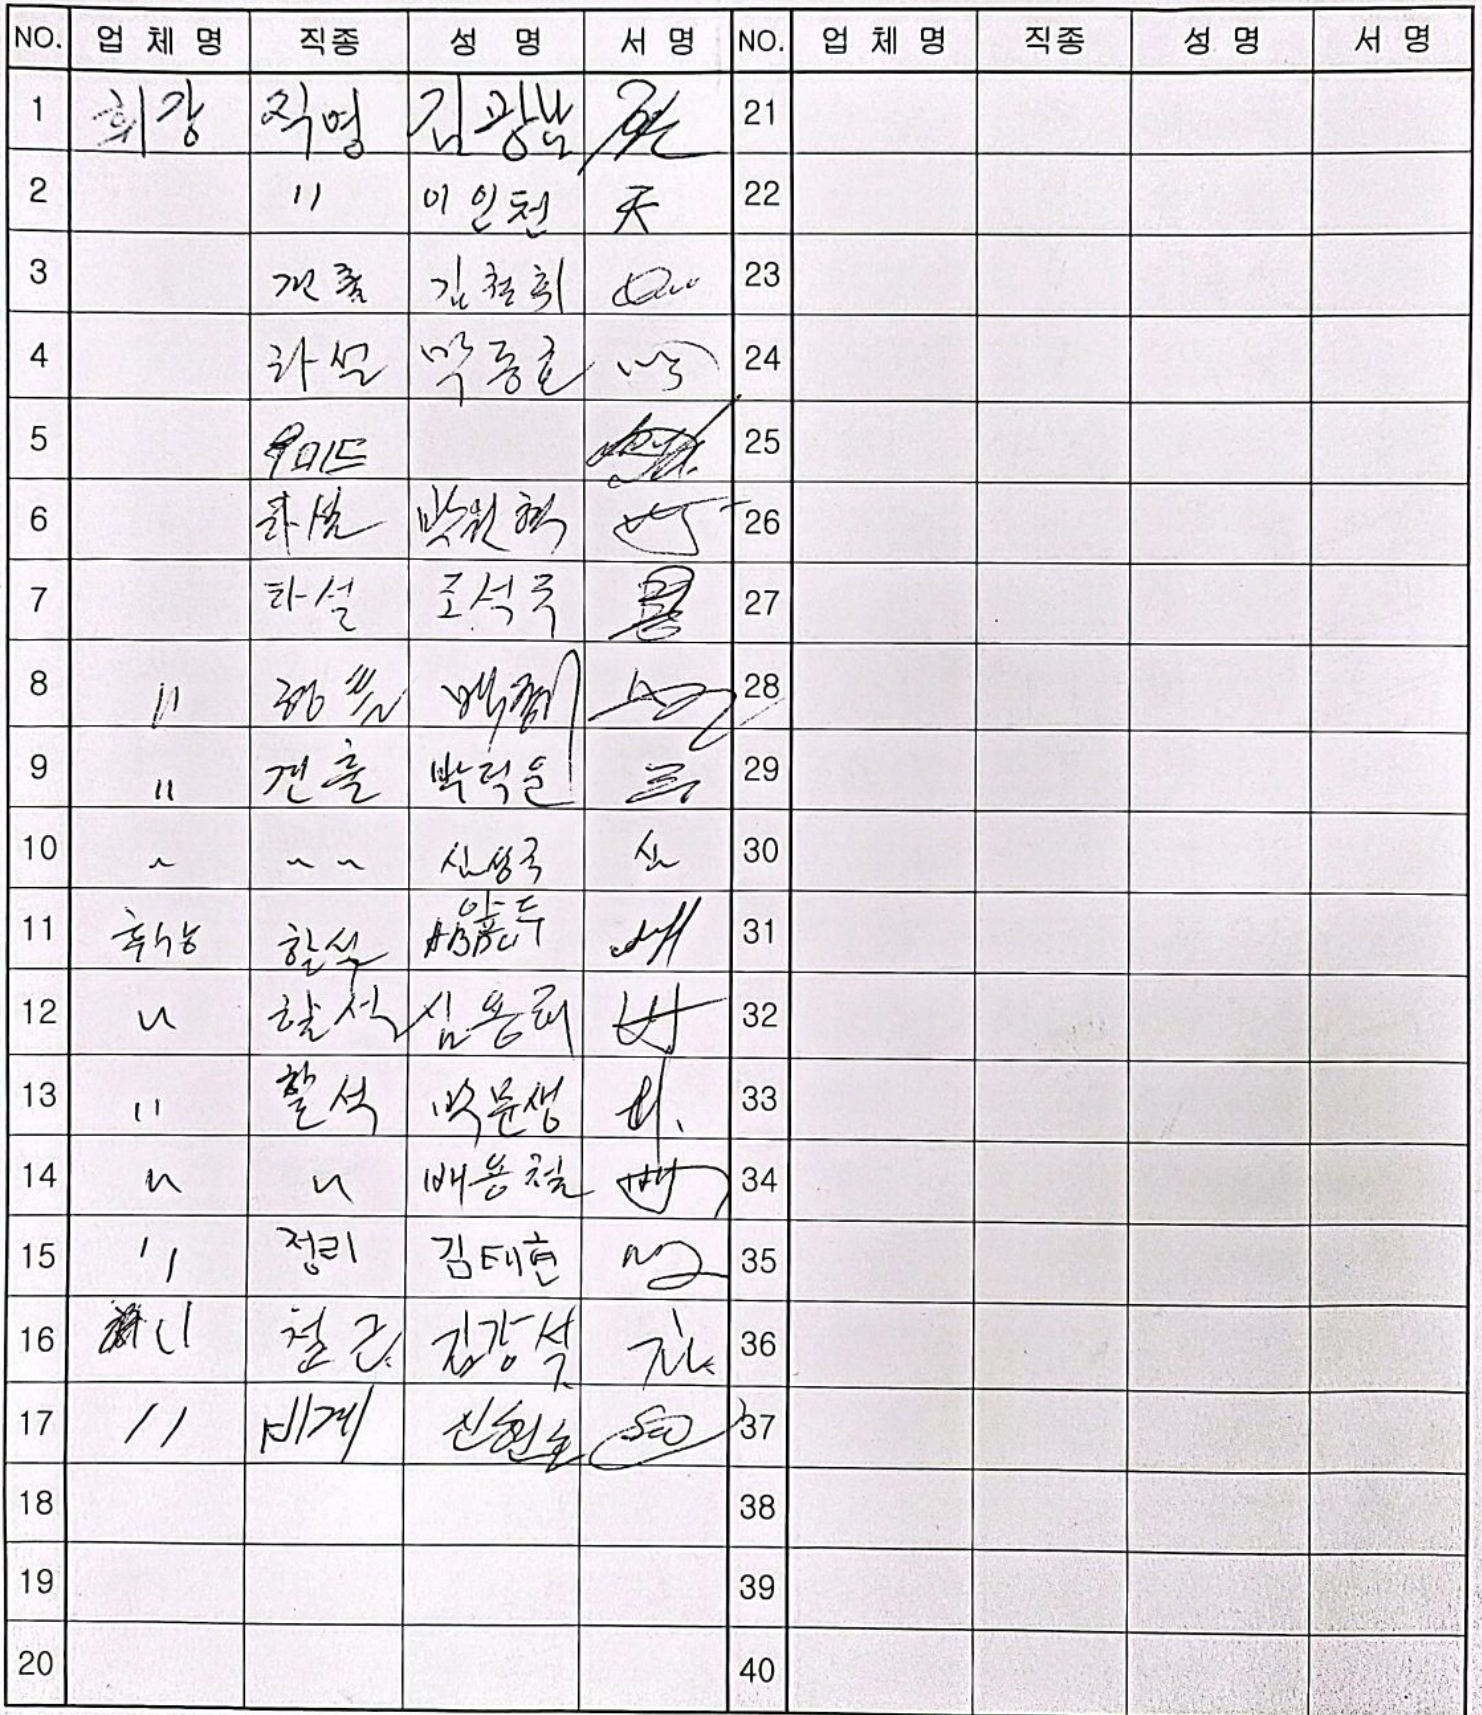 NO. 업 체 명 직종 성 명 서 명 NO. 업 체 명 직종 성 명 서 명
1 휘강 직영 김광남 21
2 〃 이인천 天 22
3 견출 김철휘 23
4 타설 박동호 24
5 우미드 25
6 타설 박원혁 26
7 타설 조석주 27
8 〃 28
9 〃 견출 박덕운 29
10 심성국 심 30
11 할석 31
12 〃 할석 심용뢰 32
13 〃 할석 박문생 33
14 〃 〃 배용철 34
15 〃 정리 김태현 35
16 〃 철근 김강석 36
17 〃 비계 신현호 37
18 38
19 39
20 40